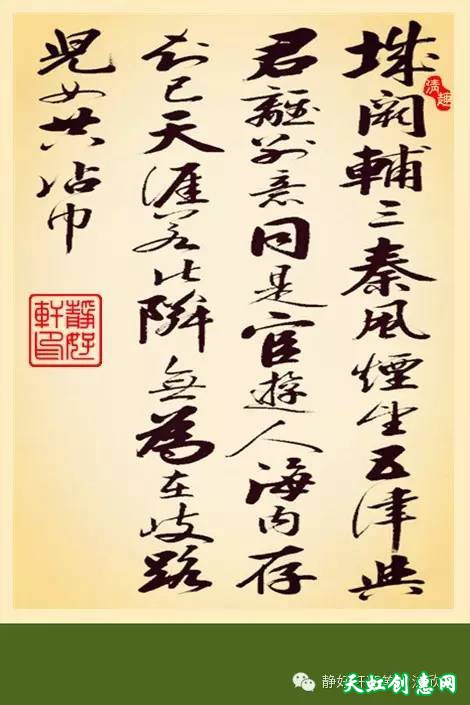 城闕輔三秦風煙望五津與
君離別意同是宦遊人海内存
知己天涯若比隣無為在歧路
兒女共沾巾
清趣
靜好軒印
静好轩
天虹创惠网